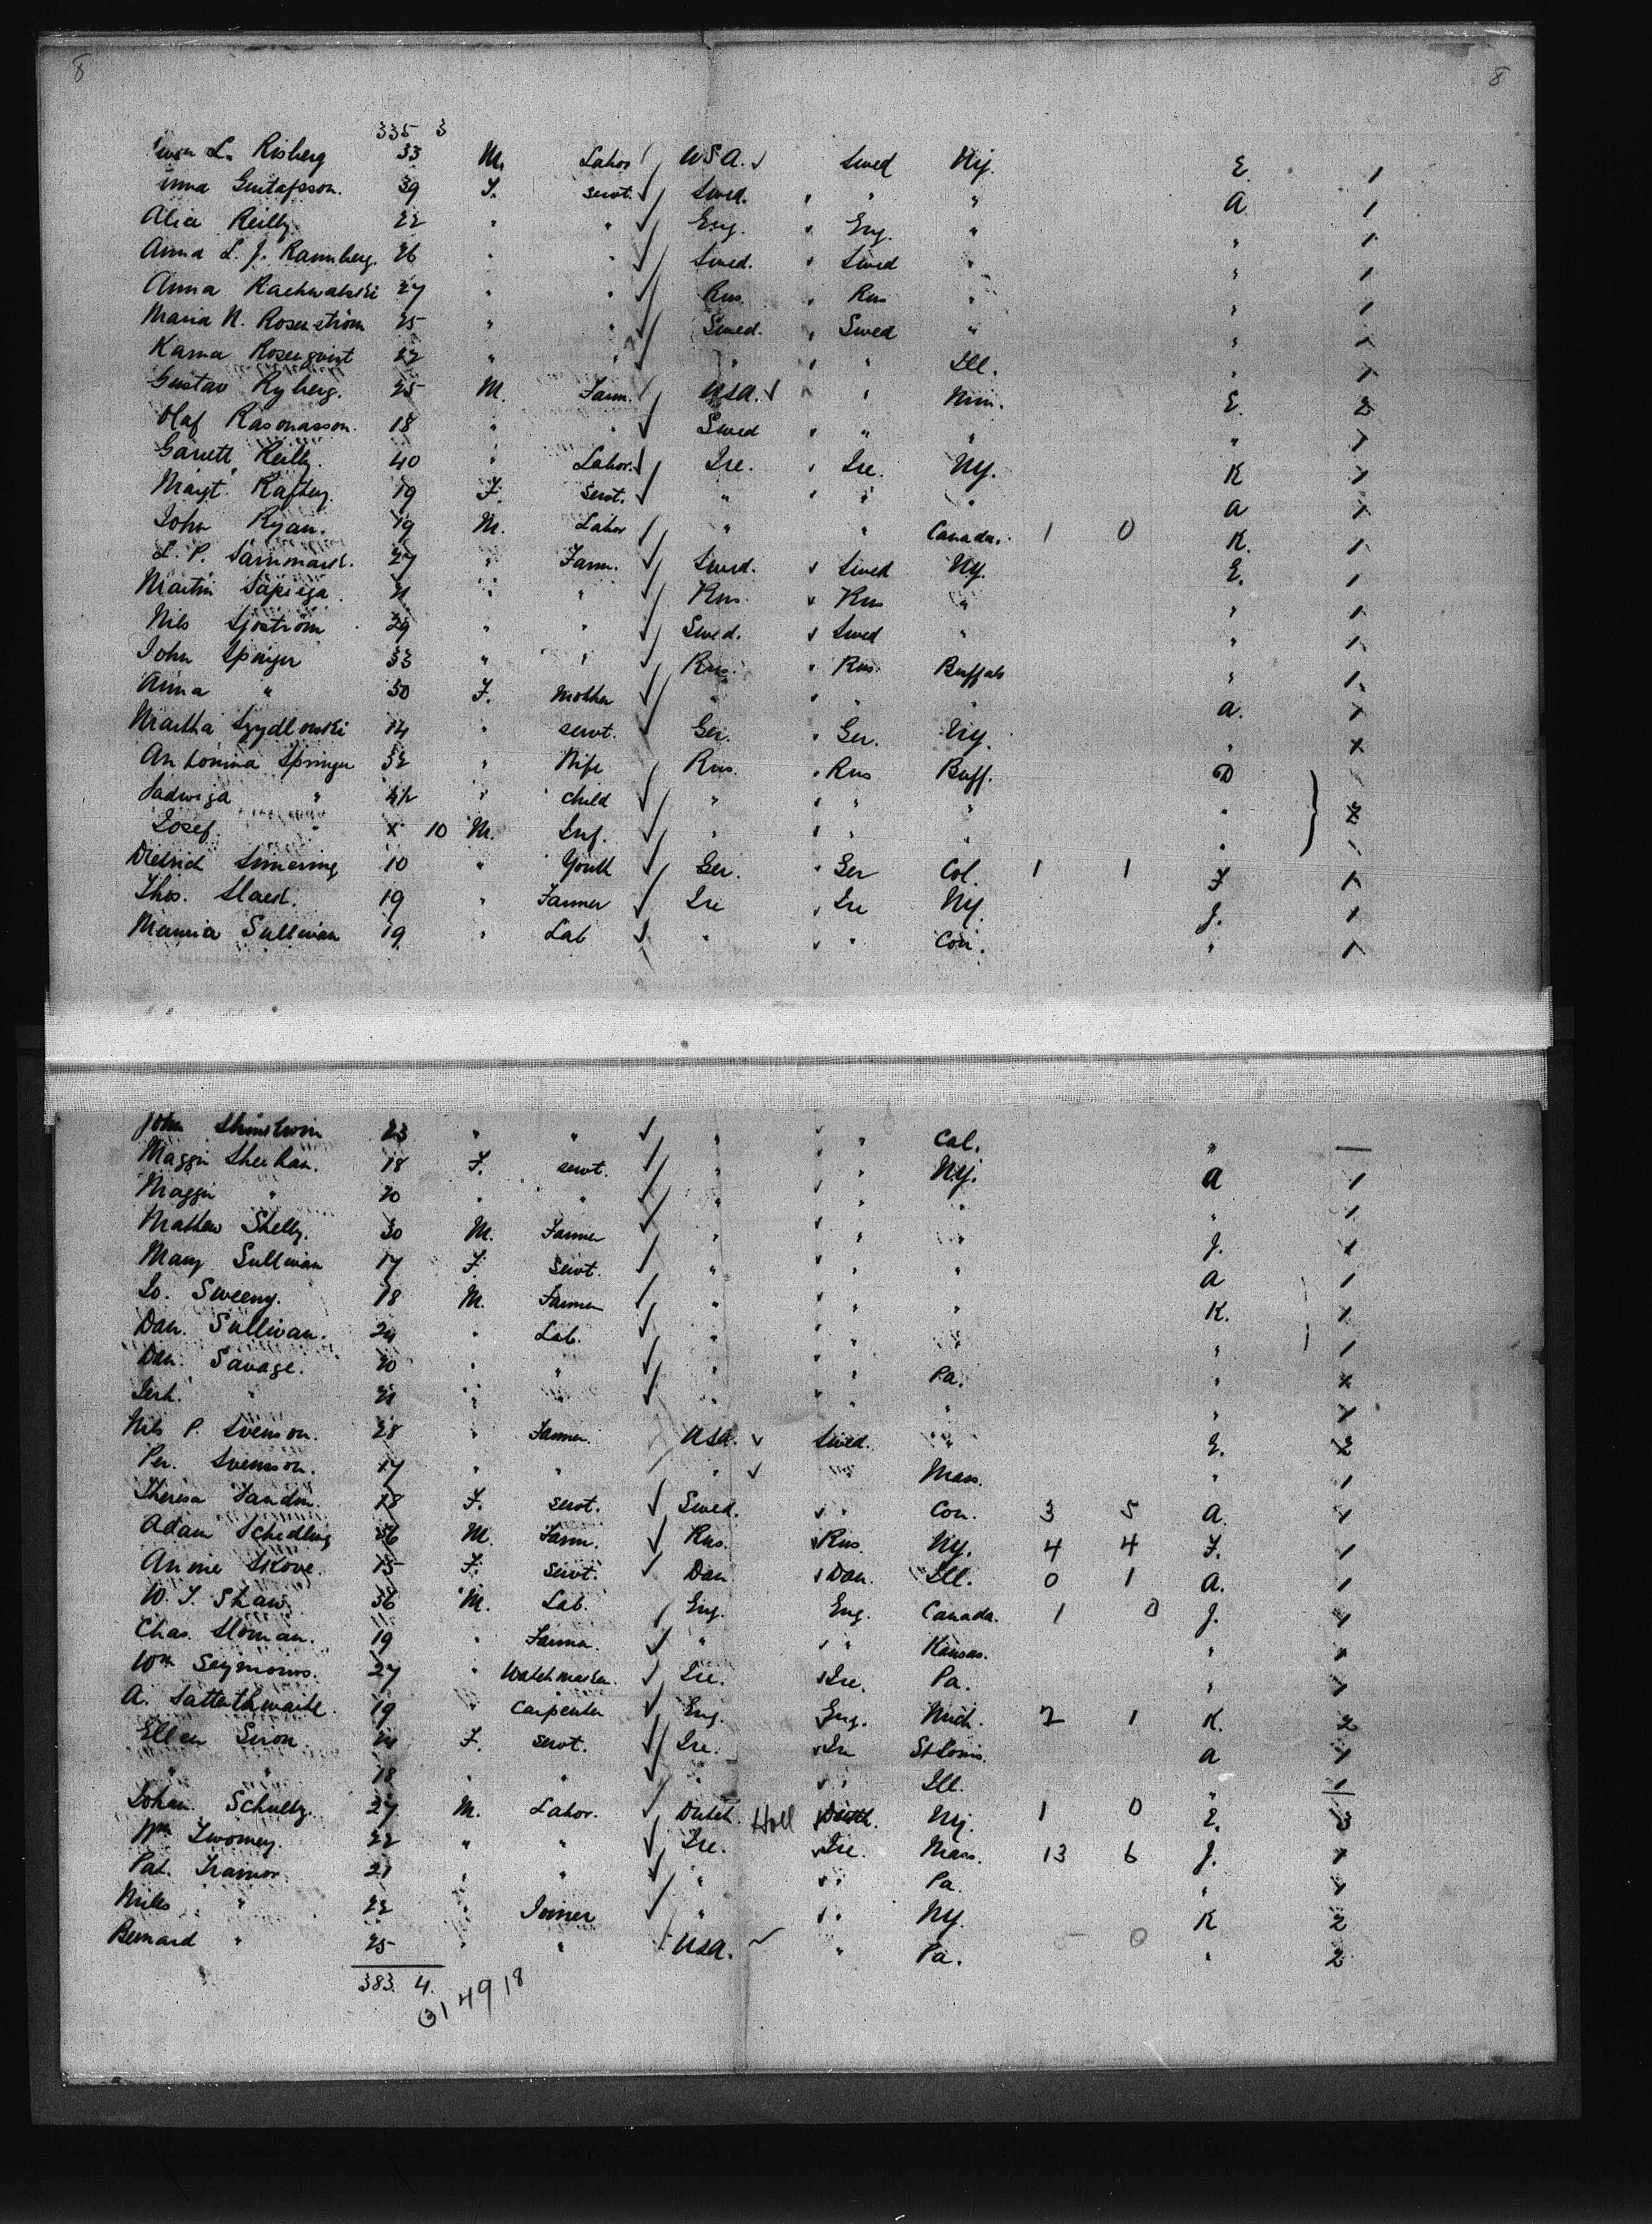 8 8
335 3
L. Risberg 33 M. Labor USA. Swed Ny. E. 1
Gustafsson. 39 F. servt. Swed. " " A 1
Alice Reilly 22 " " Eng. Eng. " " 1
Anna L. J. Rannberg. 26 " " Swed. Swed " " 1
Anna Rachwalski 27 " " Rus. Rus " " 1
Maria N. Rosenström 25 " " Swed. Swed " " 1
Karna Rosenqvist 22 " " " " Ill. " 1
Gustav Ryberg. 25 M. Farm. USA. " Min. E. 2
Olaf Rasonasson. 18 " " Swed " " " 1
Garrett Reilly. 40 " Labor. Ire. Ire. Ny. K 1
Margt. Raftery. 19 F. Servt. " " " A 1
John Ryan. 19 M. Labor " " Canada. 1 0 K. 1
L. P. 27 " Farm. Swed. Swed Ny. E. 1
Martin Sapiega 21 " " Rus. Rus " " 1
Nils Sjöström 29 " " Swed. Swed " " 1
John 33 " " Rus. Rus. Buffalo " 1
Anna " 50 F. Mother " " " A. 1
Martha Szydlowski 14 " servt. Ger. Ger. Ny. " 1
Antonina Springer 32 " Wife Rus. Rus Buff. D
Jadwiga " 4½ " child " " " " 2
Josef " x 10 M. Inf. " " " "
Dietrich 10 " Youth Ger. Ger Col. 1 1 F 1
Thos. Slack. 19 " Farmer Ire Ire Ny. J. 1
Sullivan 19 " Lab " " Con. " 1
John 23 " " " " Cal. " —
Maggie Sheehan. 18 F. servt. " " Ny. A 1
Maggie " 20 " " " " " " 1
Mathew Shelly. 30 M. Farmer " " " J. 1
Mary Sullivan 17 F. Servt. " " " A 1
Jo. Sweeny. 18 M. Farmer " " " K. 1
Dan. Sullivan. 24 " Lab. " " " " 1
Dan. Savage. 20 " " " " Pa. " 1
Jerh. " 21 " " " " " " 1
Nils P. Svenson. 28 " Farmer USA. Swed. " E. 2
Per. Svensson. 17 " " " " Mass. " 1
Theresa 18 F. servt. Swed. " Con. 3 5 A. 1
Adam Schedling 36 M. Farm. Rus. Rus. Ny. 4 4 F. 1
Annie Skove. 15 F. servt. Dan Dan. Ill. 0 1 A. 1
W. J. Shaw. 36 M. Lab. Eng. Eng. Canada. 1 0 J. 1
Chas. Sloman. 19 " Farmer. " " Kansas. " 1
Wm Seymours. 27 " Watchmaker. Ire. Ire. Pa. " 1
A. Satterthwaite 19 " Carpenter Eng. Eng. Mich. 2 1 K. 2
Ellen 21 F. servt. Ire. Ire St Louis. A 1
" " 18 " " " " Ill. " 1
Johan Schultz. 27 M. Labor. Dutch. Holl Dutch. Ny. 1 0 E. 3
Wm Twomey. 22 " " Ire. Ire. Mass. 13 6 J. 1
Pat. Trainor. 21 " " " " Pa. " 1
" 22 " Joiner " " Ny. K 2
Bernard " 25 " " USA. " Pa. 0 " 2
383. 4.
314918